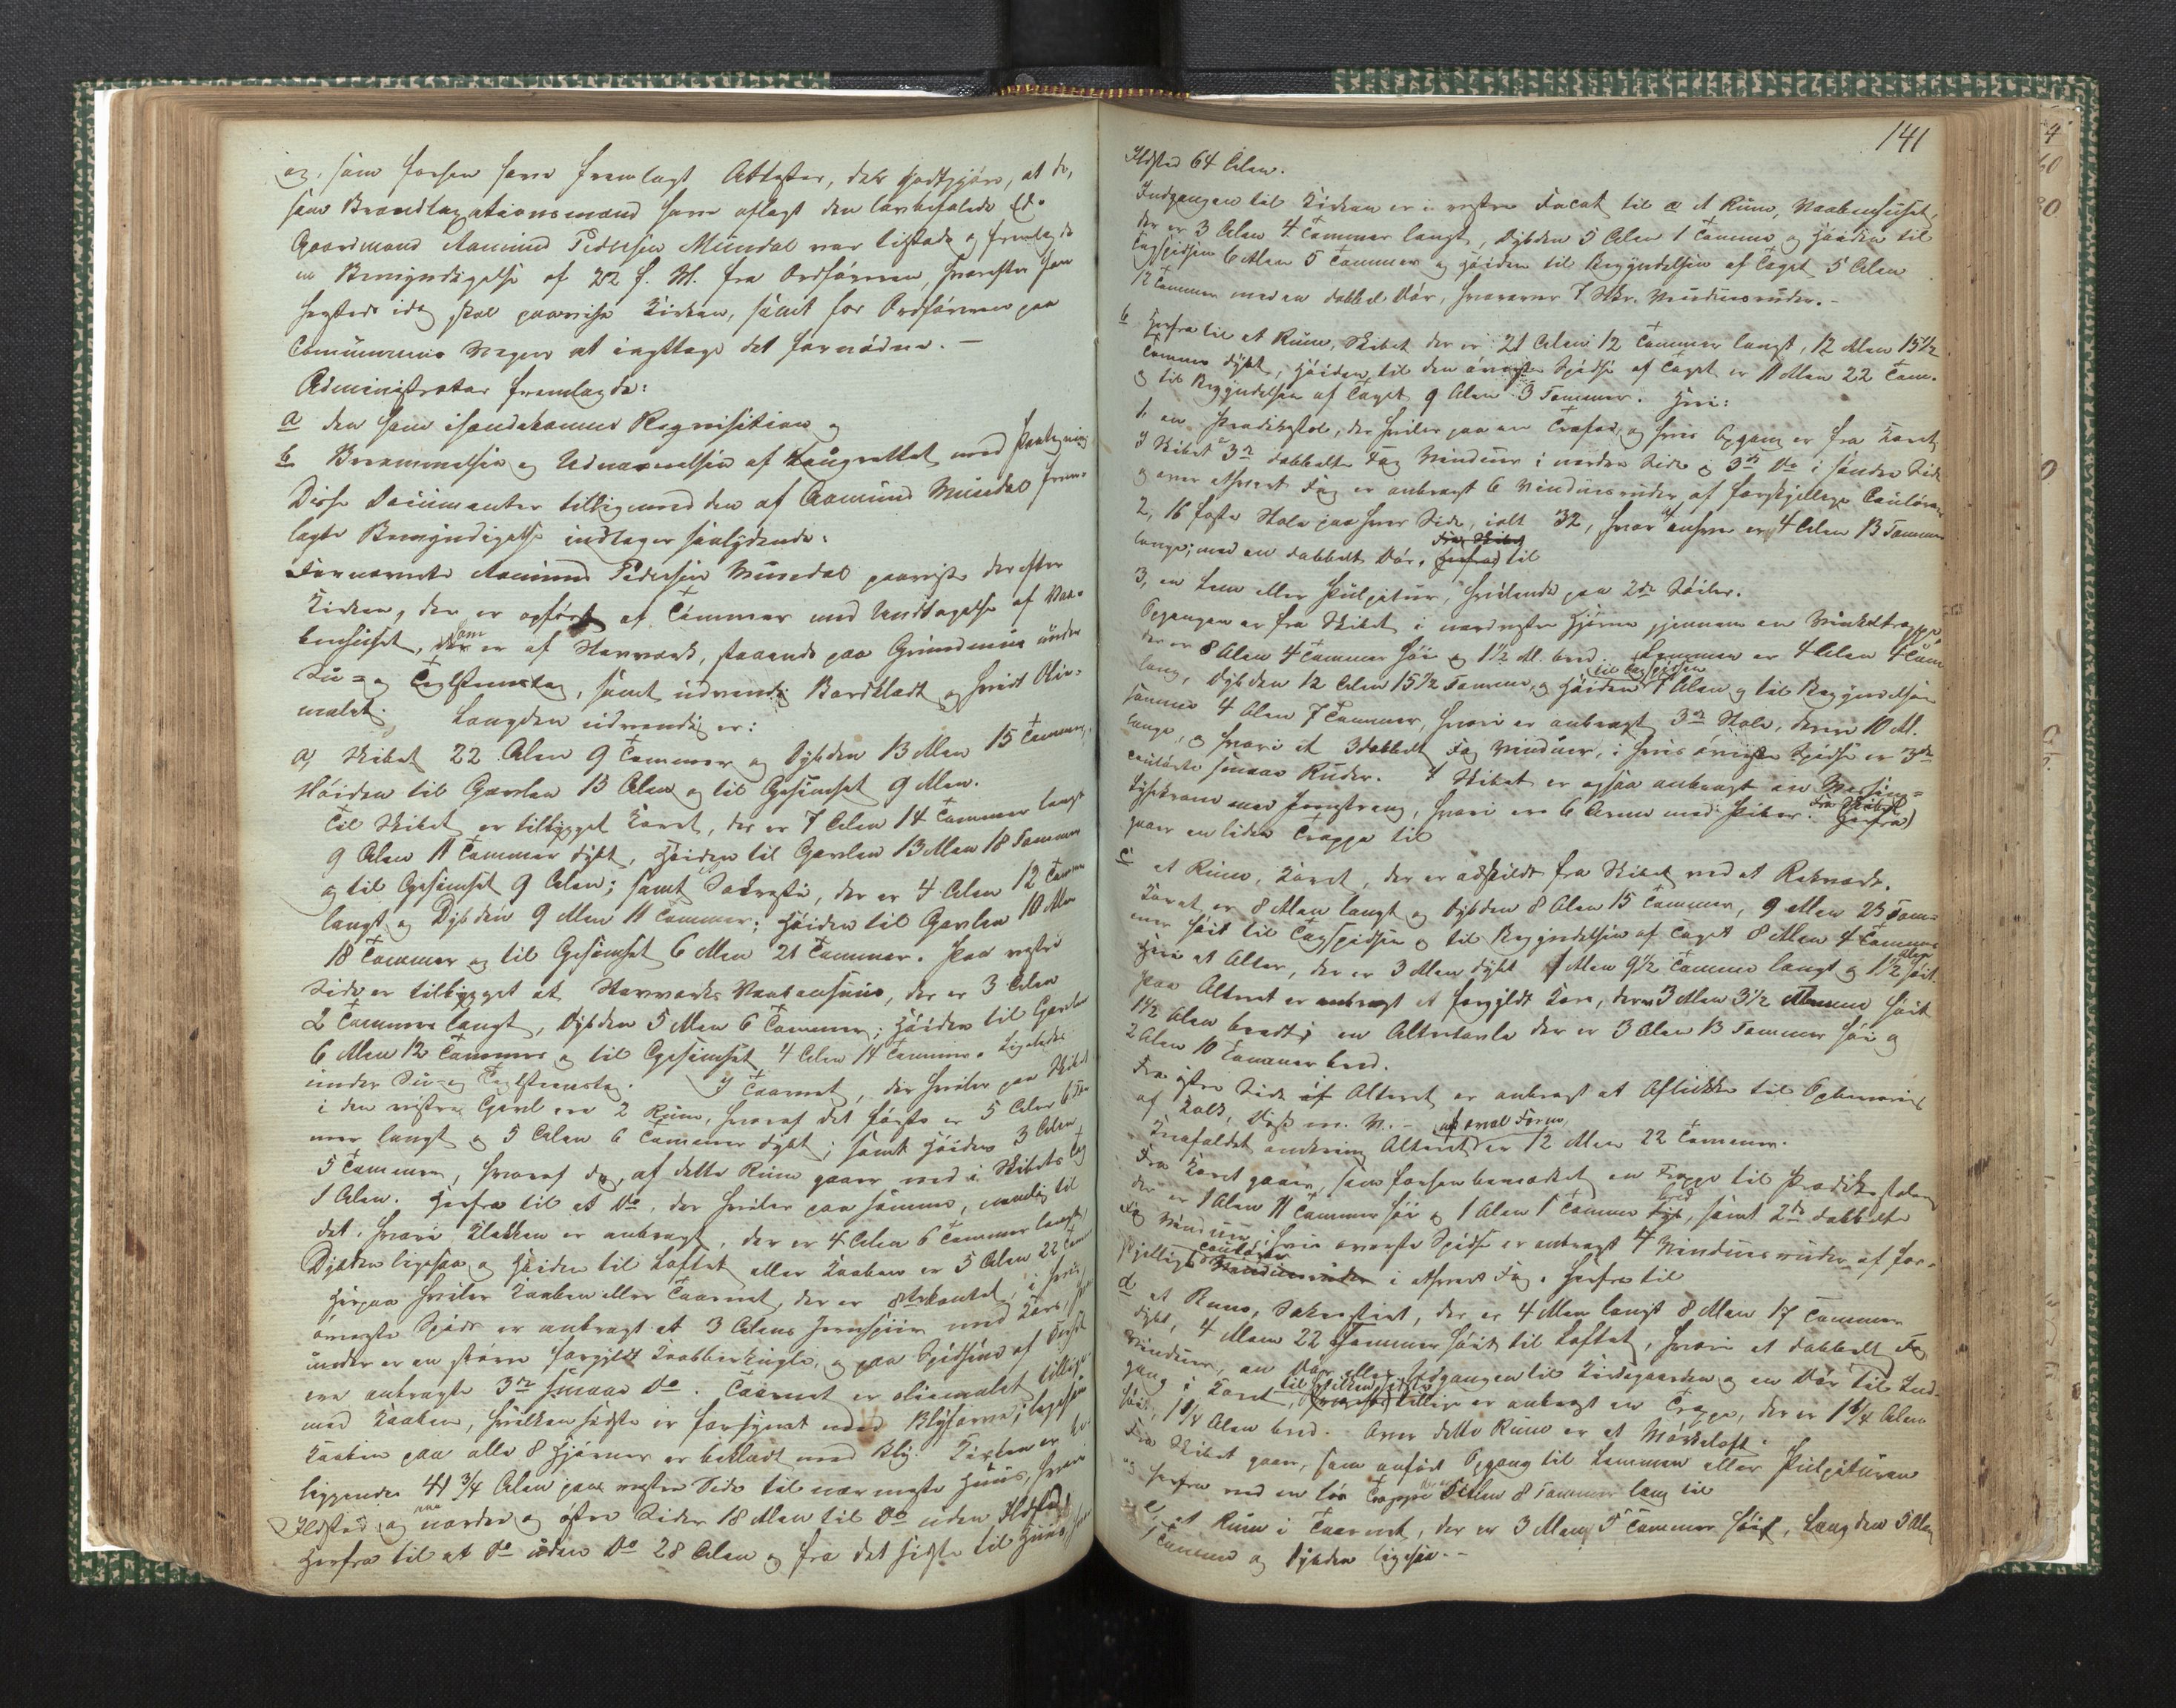 og, som forhen have fremlagt Attester, der godtgjøre, at de,
som Brandtaxationsmænd have aflagt den lovbefalede Ed.
Gaardmand Aamund Pedersen Musdal var tilstede og fremlagde
en Bemyndigelse af 22 f. M. fra Ordføreren, hvorefter han
skal paavise Kirken, samt for Ordføreren paa
Communens Vegne at iagttage det fornødne. —
Administrator fremlagde:
a den ham ihændekomne Requisition og
b Berammelsen og Udnævnelsen af Laugrettet med Paategning
Disse Documenter tilligemed den af Aamund Musdal frem-
lagte Bemyndigelse indtages saalydende:
Fornævnte Aamund Pedersen Musdal paaviste derefter
Kirken, der er opført af Tømmer med Undtagelse af Vaa-
benhuset, som er af Stavværk, staaende paa Grundmuur under
Su- og Teglsteenstag, samt udvendig Bordklædt og hvidt Olie-
malet. Længden udvendig er:
a, Skibet 22 Alen 9 Tommer og Dybden 13 Alen 15 Tommer,
Høiden til Gavlen 13 Alen og til Gesimset 9 Alen.
Til Skibet er tilbygget Koret, der er 7 Alen 14 Tommer langt
9 Alen 11 Tommer dybt, Høiden til Gavlen 13 Alen 18 Tommer
og til Gesimset 9 Alen; samt Sakristi, der er 4 Alen 12 Tommer
langt og Dybden 9 Alen 11 Tommer; Høiden til Gavlen 10 Alen
18 Tommer og til Gesimset 6 Alen 21 Tommer. Paa vestre
Side er tilbygget et Stavværks Vaabenhuus, der er 3 Alen
2 Tommer langt, Dybden 5 Alen 6 Tommer; Høiden til Gavlen
6 Alen 12 Tommer og til Gesimset 4 Alen 14 Tommer. Ligeledes
under Su- og Teglsteenstag. I Taarnet, der hviler paa Skibet
i den vestre Gavl ere 2 Rum, hvoraf det første er 5 Alen 6 Tom-
mer langt og 5 Alen 6 Tommer dybt; samt Høiden 3 Alen
5 Tommer, hvoraf dog af dette Rum gaaer ned i Skibets Tag
1 Alen. Herfra til et Do, der hviler paa samme, nemlig til
det, hvori Klokken er anbragt, der er 4 Alen 6 Tommer langt,
Dybden ligesaa og Høiden til Loftet eller Kaaben er 5 Alen 22 Tom
Herpaa hviler Kaaben eller Taarnet, der er 8tekantet, i hvis
øverste Spids er anbragt et 3 Alens Jernspiir med Kors,
under er en større forgyldt Kobberkugle, og paa Spidsene af
ere anbragte 3de smaae Do. Taarnet er oliemalet tillige-
med Kaaben, hvilken sidste er forsynet med
Kaaben paa alle 8 Hjørner er beklædt med Bly. Kirken er be-
liggende 41 3/4 Alen paa vestre Side til nærmeste Huus, hvori
Ildsted og paa nordre og østre Sider 18 Alen til Do uden Ildsted
Herfra til et Do uden Do 28 Alen og fra det sidste til Huus
141
Ildsted 64 Alen.
Indgangen til Kirken er i vestre Facade til a et Rum, Vaabenhuset,
der er 3 Alen 4 Tommer langt, Dybden 5 Alen 1 Tomme og Høiden til
Tagspidsen 6 Alen 5 Tommer og Høiden til Begyndelsen af Taget 5 Alen
12 Tommer med en dobbel Dør, hvorover 7 Stkr. Vinduesruder. —
b Herfra til et Rum, Skibet der er 21 Alen 12 Tommer langt, 12 Alen 15 1/2
Tomme dybt, Høiden til den øverste Spidse af Taget er 11 Alen 22 Tom.
og til Begyndelsen af Taget 9 Alen 3 Tommer. Heri:
1, en Prædikestol, der hviler paa en og hvis Opgang er fra Koret
I Skibet 3de dobbelte Fag Vinduer i nordre Side og 3de Do i søndre Side
og over ethvert Fag er anbragt 6 Vinduesruder af forskjellige Couleurer
2, 16 faste Stole paa hver Side, ialt 32, hvoraf enhver er 4 Alen 13 Tommer
lange; med en dobbelt Dør. Fra Skibet herfra til
3, en Lem eller Pulpitur, hvilende paa 2de Søiler.
Opgangen er fra Skibet i nordvestre Hjørne gjennem en Vinkeltrappe,
der er 8 Alen 4 Tommer høi og 1 1/2 Al. bred. Lemmen er 4 Alen 4 Tom
lang, Dybden 12 Alen 15 1/2 Tomme, og Høiden til Tagspidsen 7 Alen og til Begyndelsen
samme 4 Alen 7 Tommer, hvori er anbragt 3de Stole, der ere 10 Al.
lange, og hvori et 3dobbelt Fag Vinduer, i hvis øverste Spidse er 3de
couleurte smaae Ruder. I Skibet er ogsaa anbragt en Messing-
Lysekrone med Jernstang, hvori ere 6 Arme med Piber. Fra Skibet herfra
gaaer en liden Trappe til
c et Rum, Koret, der er adskildt fra Skibet ved et Rækværk.
Koret er 8 Alen langt og Dybden 8 Alen 15 Tommer, 9 Alen 23 Tom-
mer høit til Tagspidsen og til Begyndelsen af Taget 8 Alen 4 Tommer
Heri et Alter, der er 3 Alen dybt 1 Alen 9 1/2 Tomme langt og 1 1/2 Alen høit.
Paa Alteret er anbragt et forgyldt Kors, der er 3 Alen 3 1/2 Tomme høit
1 1/2 Alen bredt; en Altertavle der er 3 Alen 13 Tommer høi og
2 Alen 10 Tommer bred.
Fra østre Side af Alteret er anbragt et Aflukke til Opbevaring
af Kalk, Disk m. V. — af oval Form,
Knæfaldet omkring Alteret er 12 Alen 22 Tommer.
Fra Koret gaaer, som forhen bemærket en Trappe til Prædikestolen
der er 1 Alen 11 Tommer høi og 1 Alen 1 Tomme dyb bred, samt 2de dobbelte
Fag Vinduer, i hvis øverste Spidse er anbragt 4 Vinduesruder af for-
skjellige Couleurer Vinduesruder i ethvert Fag. Herfra til
d et Rum, Sakristiet, der er 4 Alen langt 8 Alen 17 Tommer
dybt, 4 Alen 22 Tommer høit til Loftet, hvori et dobbelt Fag
Vinduer, en Dør eller Udgangen til Kirkegaarden og en Dør til Ind-
gang i Koret, til hvilken sidste tillige er anbragt en Trappe, der er 1 1/4 Alen
høi, 1 1/4 Alen bred. Over dette Rum er et Mørkeloft.
Fra Skibet gaaer, som anført Opgang til Lemmen eller Pulpituren
og herfra ved en løs Trappe der er Alen 8 Tommer lang til
e, et Rum i Taarnet, der er 3 Alen 5 Tommer høit, Længden 5 Alen
Tomme og Dybden ligesaa. —